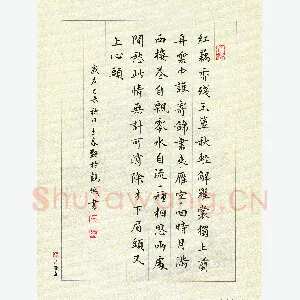 紅藕香殘玉簟秋輕解羅裳獨上蘭
舟雲中誰寄錦書來雁字回時月滿
西樓花自飄零水自流一種相思兩處
閒愁此情無計可消除才下眉頭又
上心頭